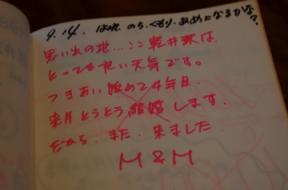 9.14. はれ のち、くもり、あめになるかな?
思い出の地…ここ軽井沢は
とっても良い天気です。
つきあい始めて4年目、
来月とうとう結婚します。
だから、また、来ました
M&M